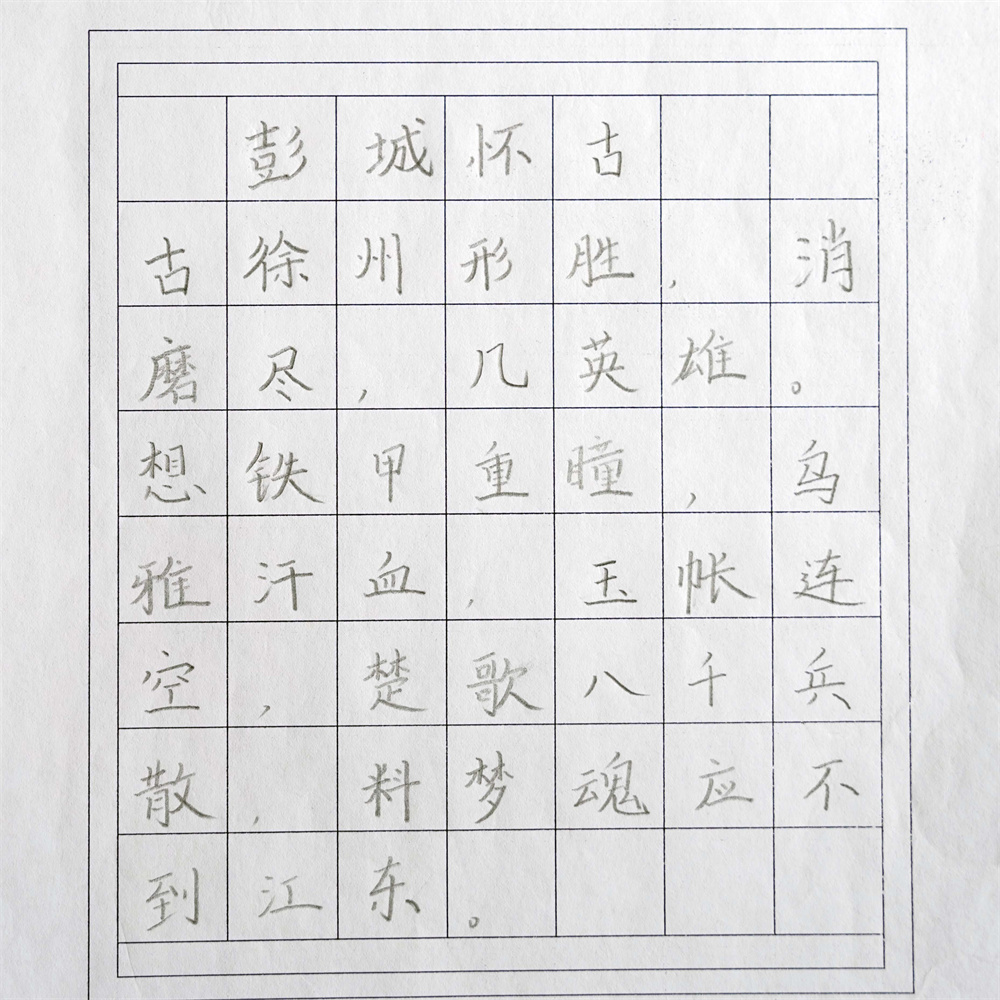 彭城怀古
古徐州形胜，消
磨尽，几英雄。
想铁甲重瞳，乌
雅汗血，玉帐连
空，楚歌八千兵
散，料梦魂应不
到江东。